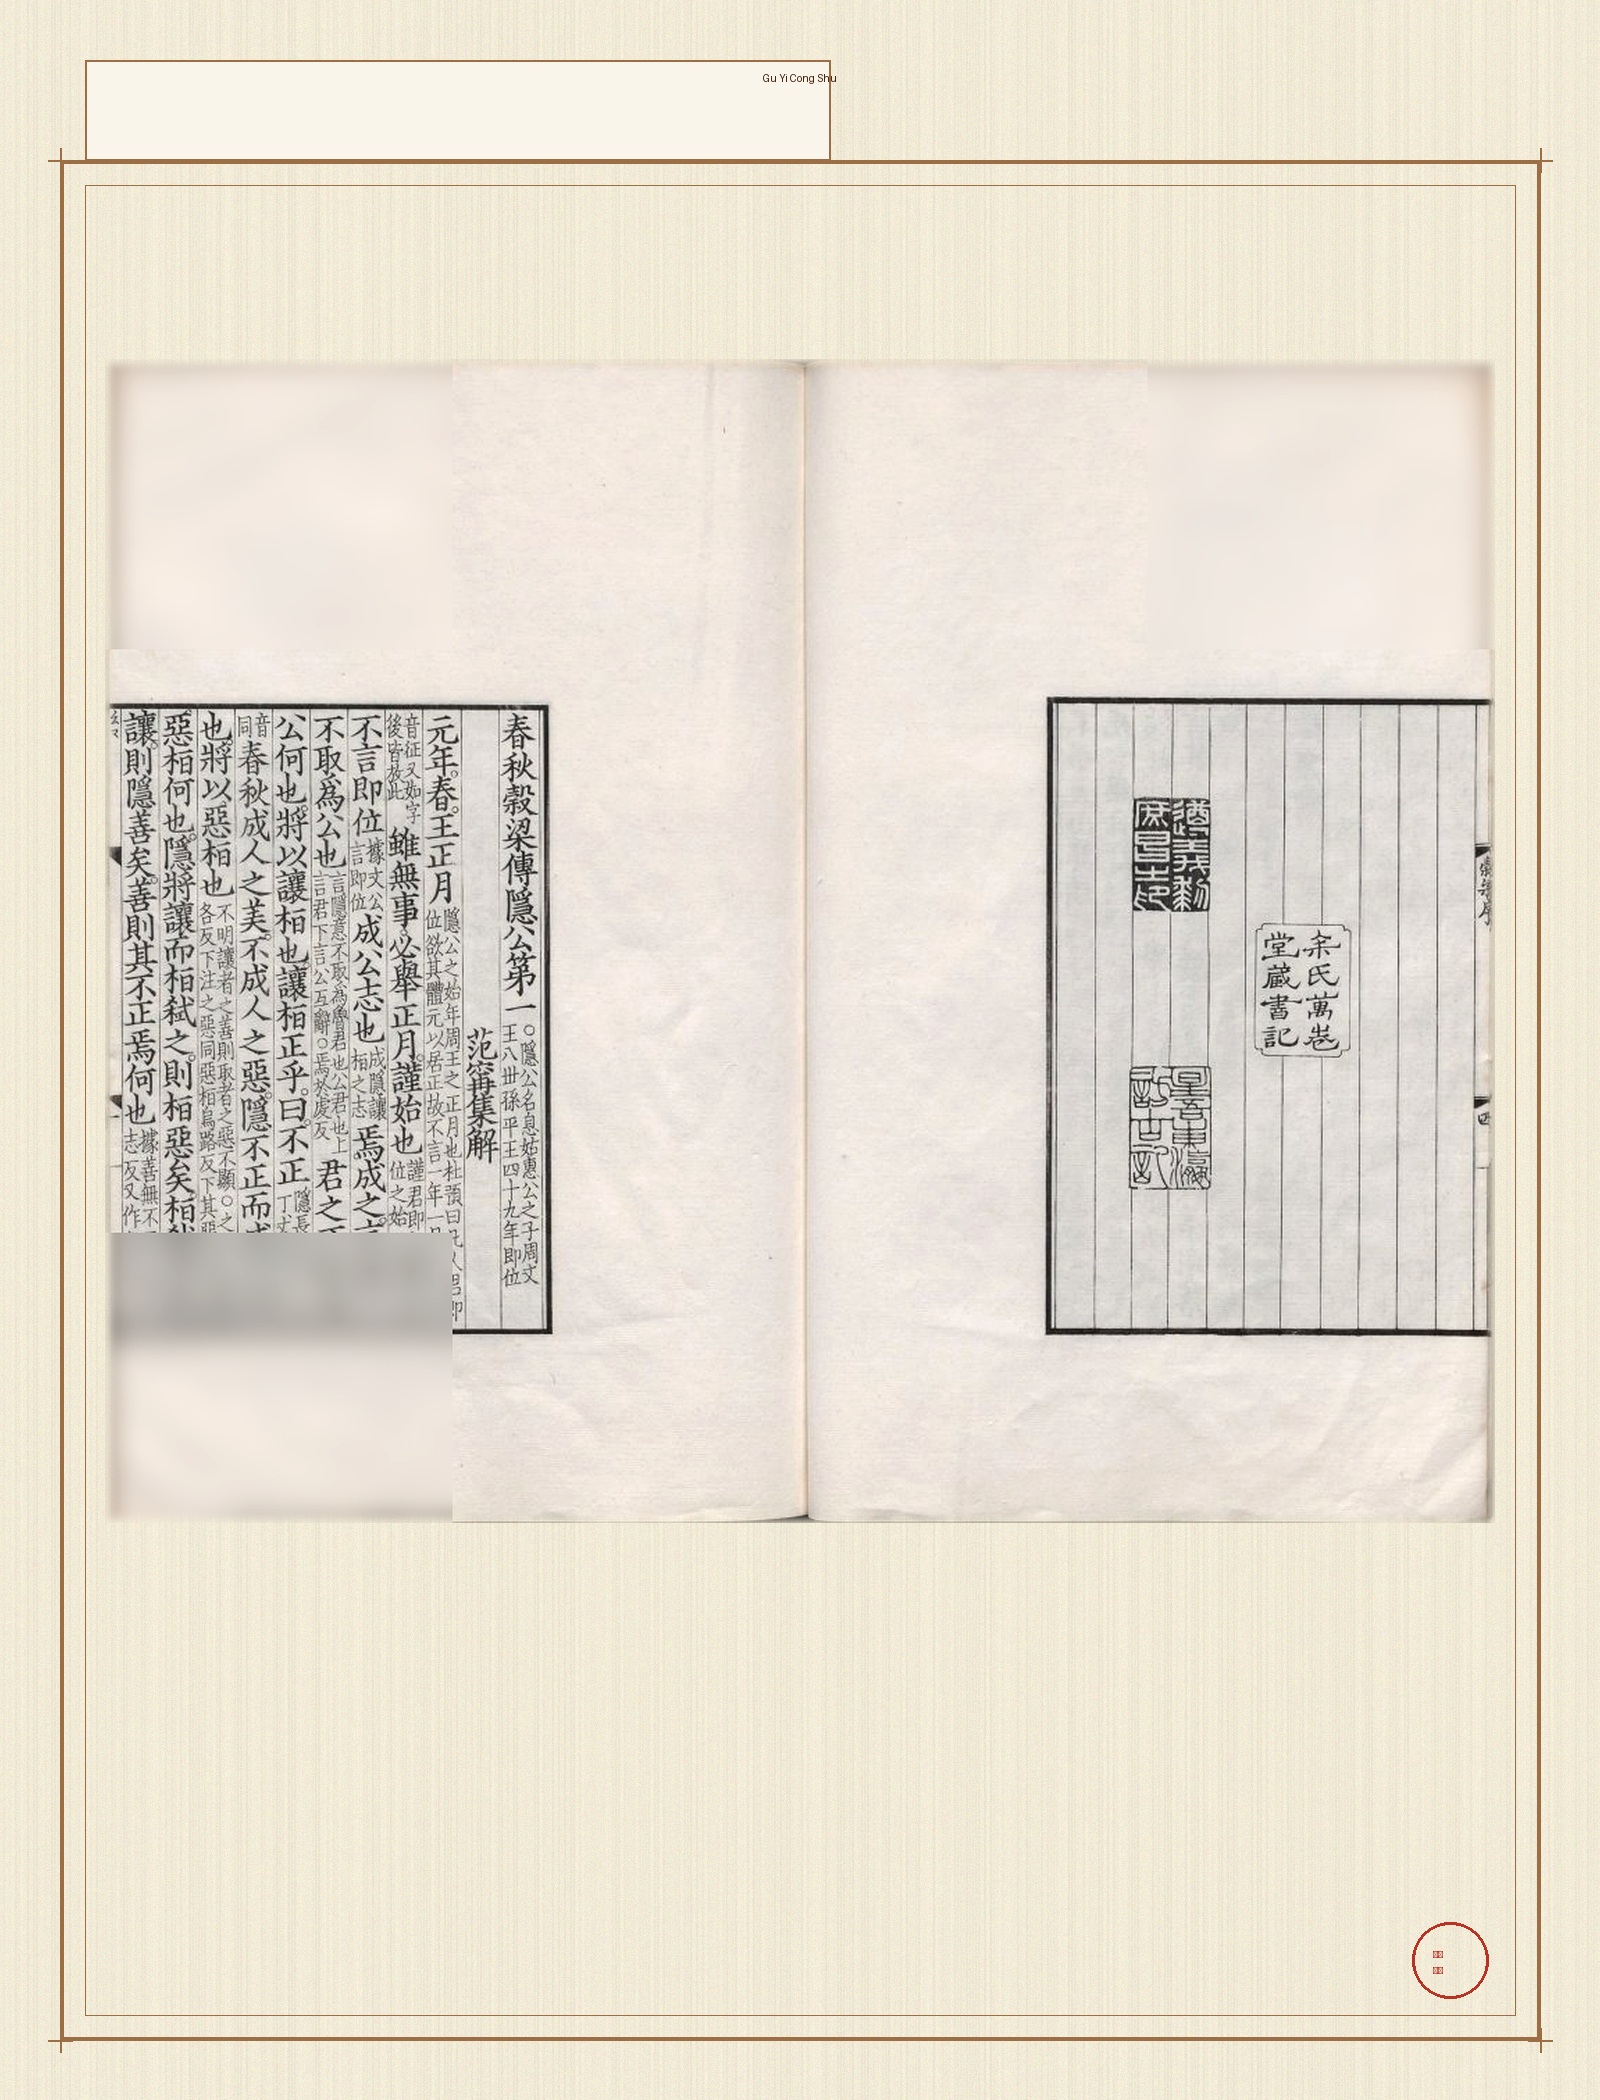 Gu Yi Cong Shu
余氏萬卷
堂藏書記
春秋穀梁傳隱公第一
○隱公名息姑惠公之子周文
王八世孫平王四十九年即位
范甯集解
元年春王正月
隱公之始年周王之正月也杜預曰凡人君即
位欲其體元以居正故不言一年一月
音征又如字
後皆放此
雖無事必舉正月謹始也
謹君即
位之始
不言即位
據文公
言即位
成公志也
成隱讓
桓之志
焉成之
不取爲公也
言隱意不取為魯君也公君也上
言君下言公互辭○焉於虔反
君之
公何也將以讓桓也讓桓正乎曰不正
隱長
音
同
春秋成人之美不成人之惡隱不正而
也將以惡桓也
不明讓者之善則取者之惡不顯○之
各反下注之惡同惡桓烏路反下其惡
惡桓何也隱將讓而桓弒之則桓惡矣桓
讓則隱善矣善則其不正焉何也
據善無不
志反又作
四